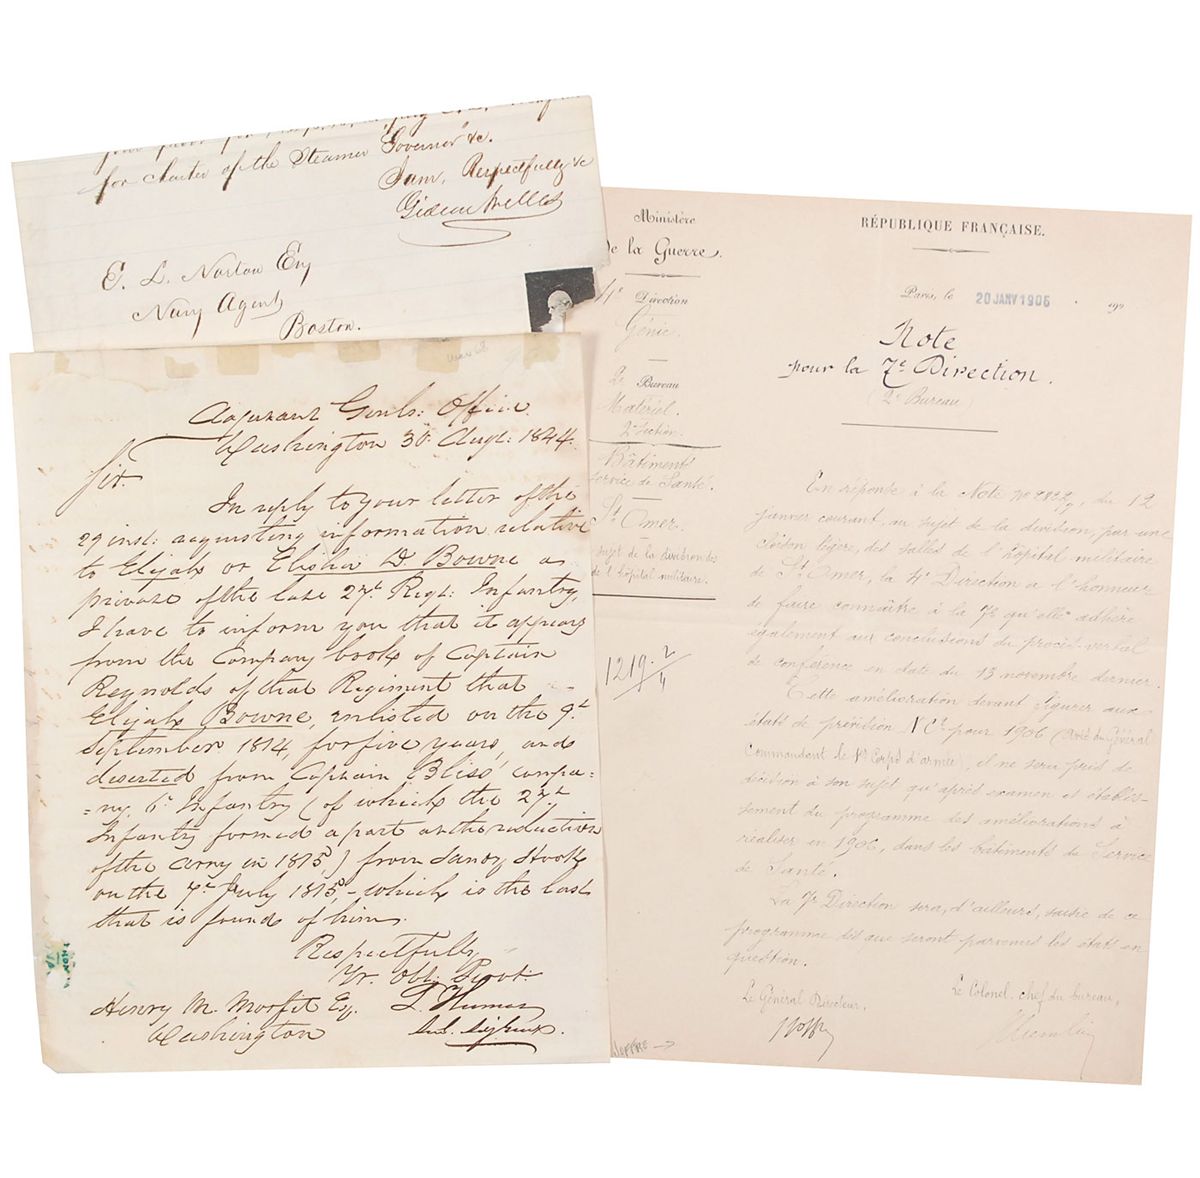 for charter of the Steamer "Governor" &c.
I am, Respectfully &c
Gideon Welles
E. L. Norton Esq
Navy Agent
Boston.
Adjutant Genls: Office
Washington 30 Augt: 1844.
Sir.
In reply to your letter of the
29 inst: requesting information relative
to Elijah or Elisha D Bowne as
private of the late 27th Regt: Infantry,
I have to inform you that it appears
from the Company book of Captain
Reynolds of that Regiment that
Elijah Bowne, enlisted on the 9th
September 1814, for five years, and
deserted from Captain Bliss' compa-
-ny, 6th Infantry (of which the 27th
Infantry formed a part on the reduction
of the army in 1815) from Sandy Hook
on the 7th July 1815, - which is the last
that is found of him.
Respectfully
Yr. Obt: Servt:
L. Thomas
Henry M. Morfit Esq.
Washington
Ministère
De la Guerre.
4e Direction
Génie.
2e Bureau
Matériel.
2e Section.
Bâtiments
Service de Santé.
St Omer.
sujet de la division des
de l'hôpital militaire.
1219. 2/4
RÉPUBLIQUE FRANÇAISE.
Paris, le 20 JANV 1906 190
Note
pour la 7e Direction.
(2e Bureau)
En réponse à la Note no du 12
janvier courant, au sujet de la division, par une
cloison légère, des salles de l'hôpital militaire
de St Omer, la 4e Direction a l'honneur
de faire connaître à la 7e qu'elle adhère
également aux conclusions du procès-verbal
de conférence en date du 13 novembre dernier.
Cette amélioration devant figurer aux
états de prévision N pour 1906 (Avis du Général
Commandant le 1er Corps d'armée), il ne sera pris de
décision à son sujet qu'après examen et établis-
sement du programme des améliorations à
réaliser en 1906, dans les bâtiments du Service
de Santé.
La 7e Direction sera, d'ailleurs, saisie de ce
programme dès que seront parvenus les états en
question.
Le Général Directeur.
Le Colonel, chef du bureau,
Joffre
JOFFRE →